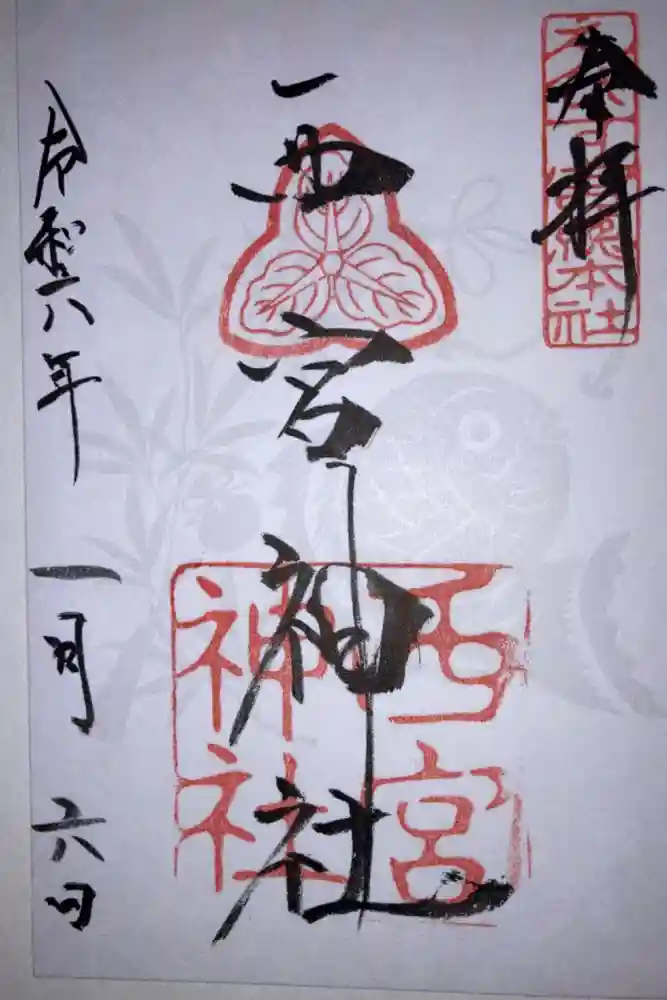 奉拝
宮總本社
西宮神社
西宮
神社
令和六年 一月 六日